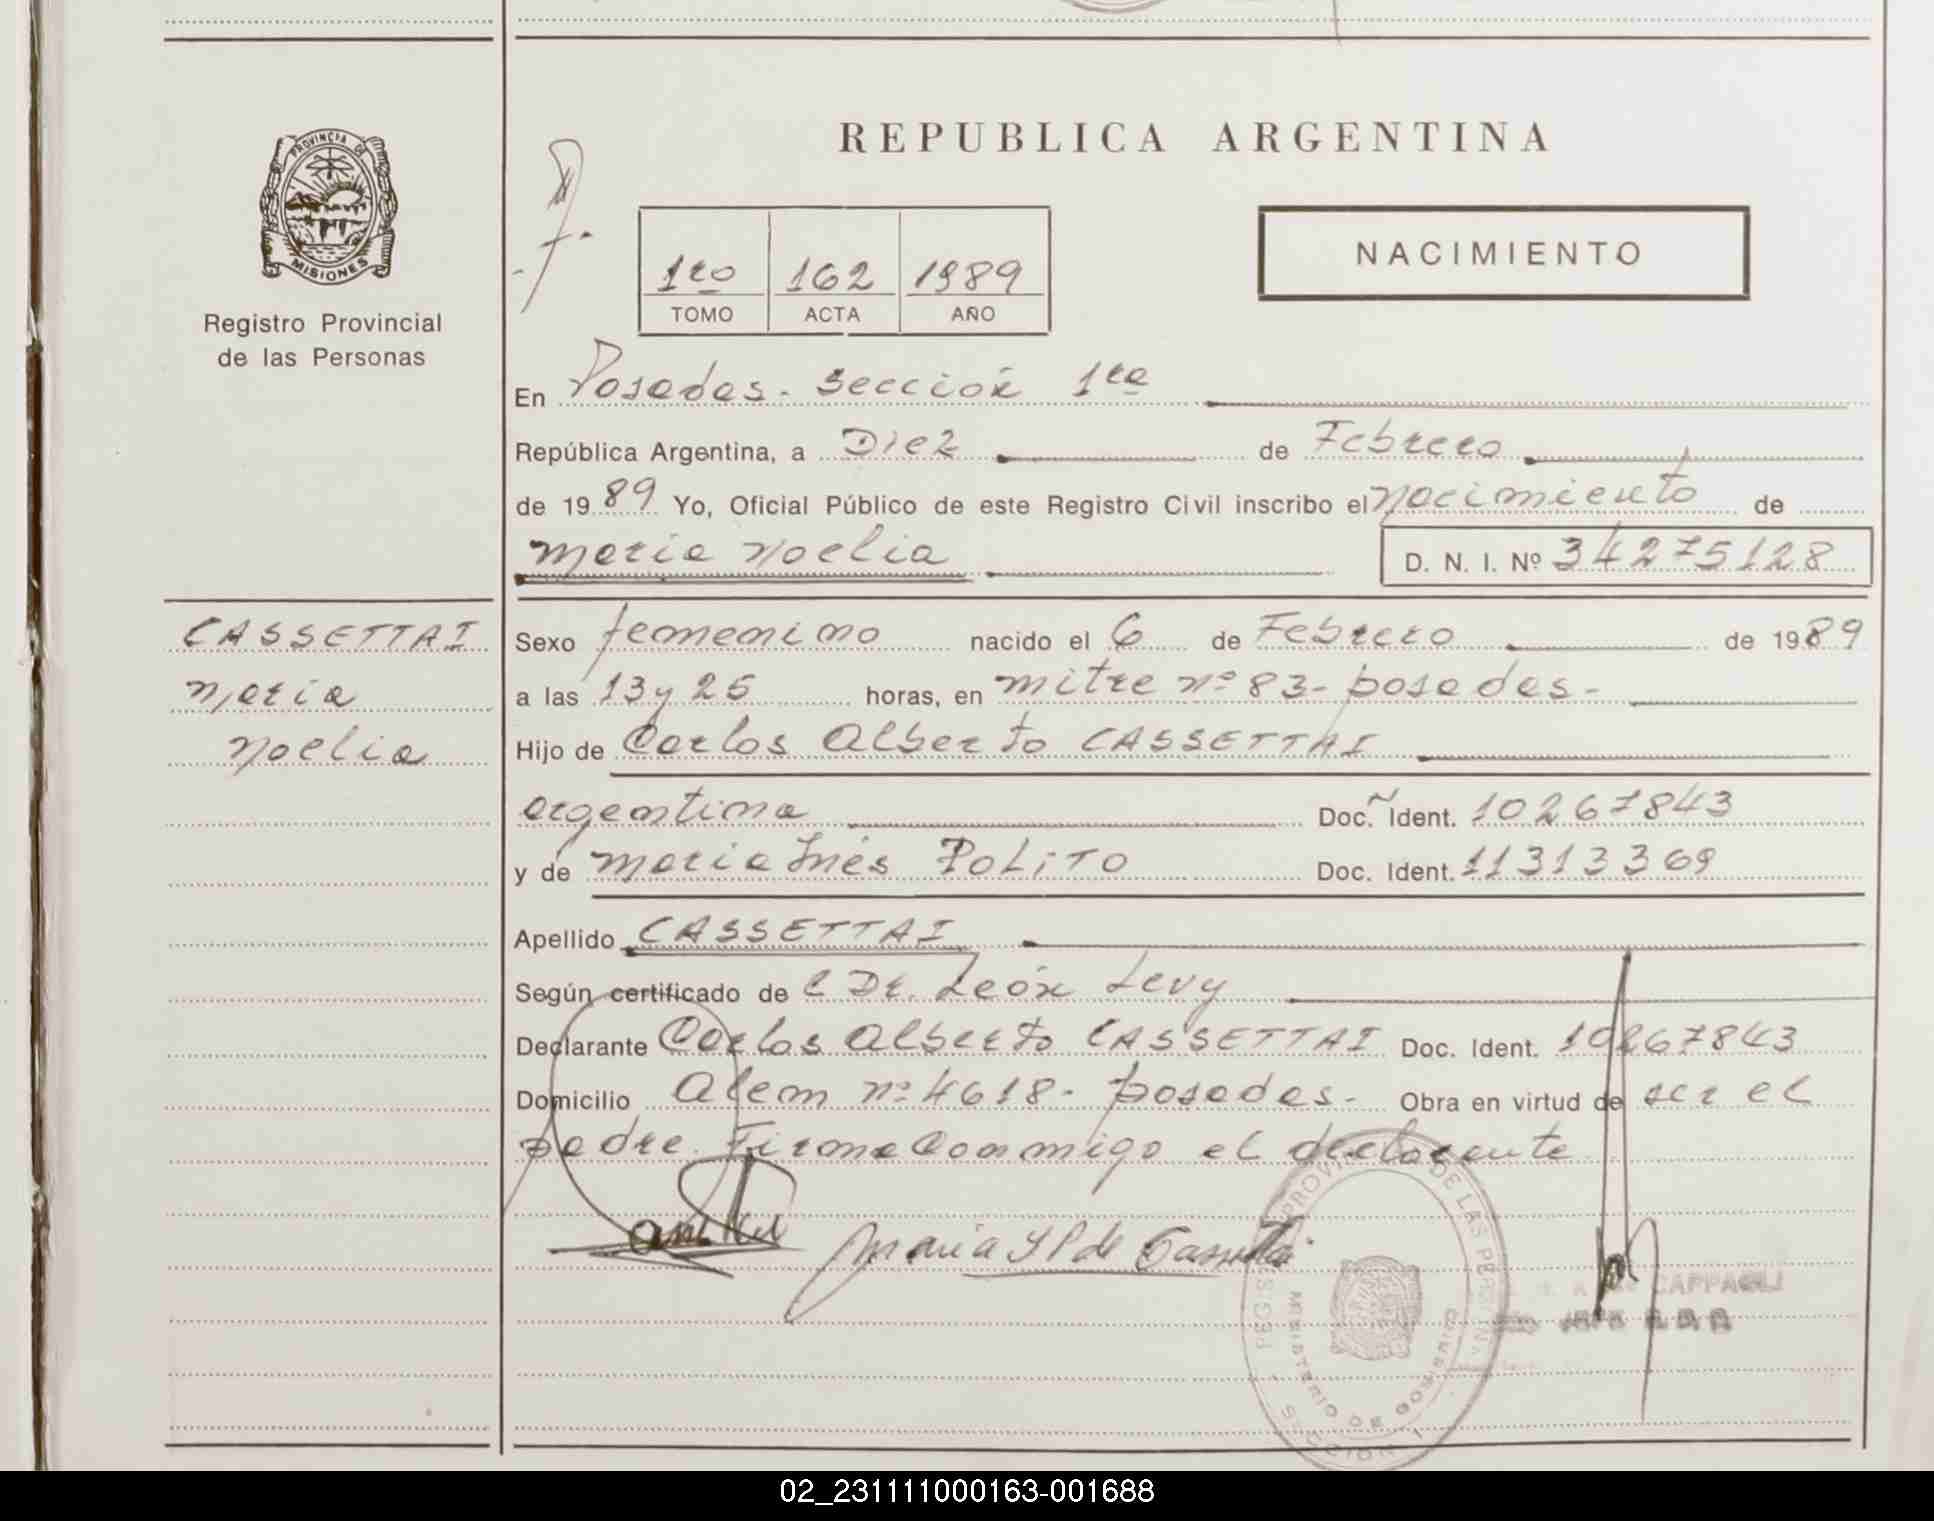 REPUBLICA ARGENTINA
PROVINCIA DE
MISIONES
Registro Provincial
de las Personas
1ro 162 1989
TOMO ACTA AÑO
NACIMIENTO
En Posadas. Sección 1ra
República Argentina, a Diez de Febrero
de 1989 Yo, Oficial Público de este Registro Civil inscribo el nacimiento de
Maria Noelia D. N. I. Nº 34275128
CASSETTAI
Maria
Noelia
Sexo femenino nacido el 6 de Febrero de 1989
a las 13 y 25 horas, en mitre nº 83- posadas-
Hijo de Carlos Alberto CASSETTAI
argentina Doc. Ident. 10267843
y de Maria Inés POLITO Doc. Ident. 11313369
Apellido CASSETTAI
Según certificado de l Dr. León Levy
Declarante Carlos Alberto CASSETTAI Doc. Ident. 10267843
Domicilio Alem nº 4618- posadas- Obra en virtud de ser el
padre. Firma Conmigo el declarante
María I P de Cassettai
MINISTERIO DE GOBIERNO
SECCION 1
CAPPAGLI
02_231111000163-001688